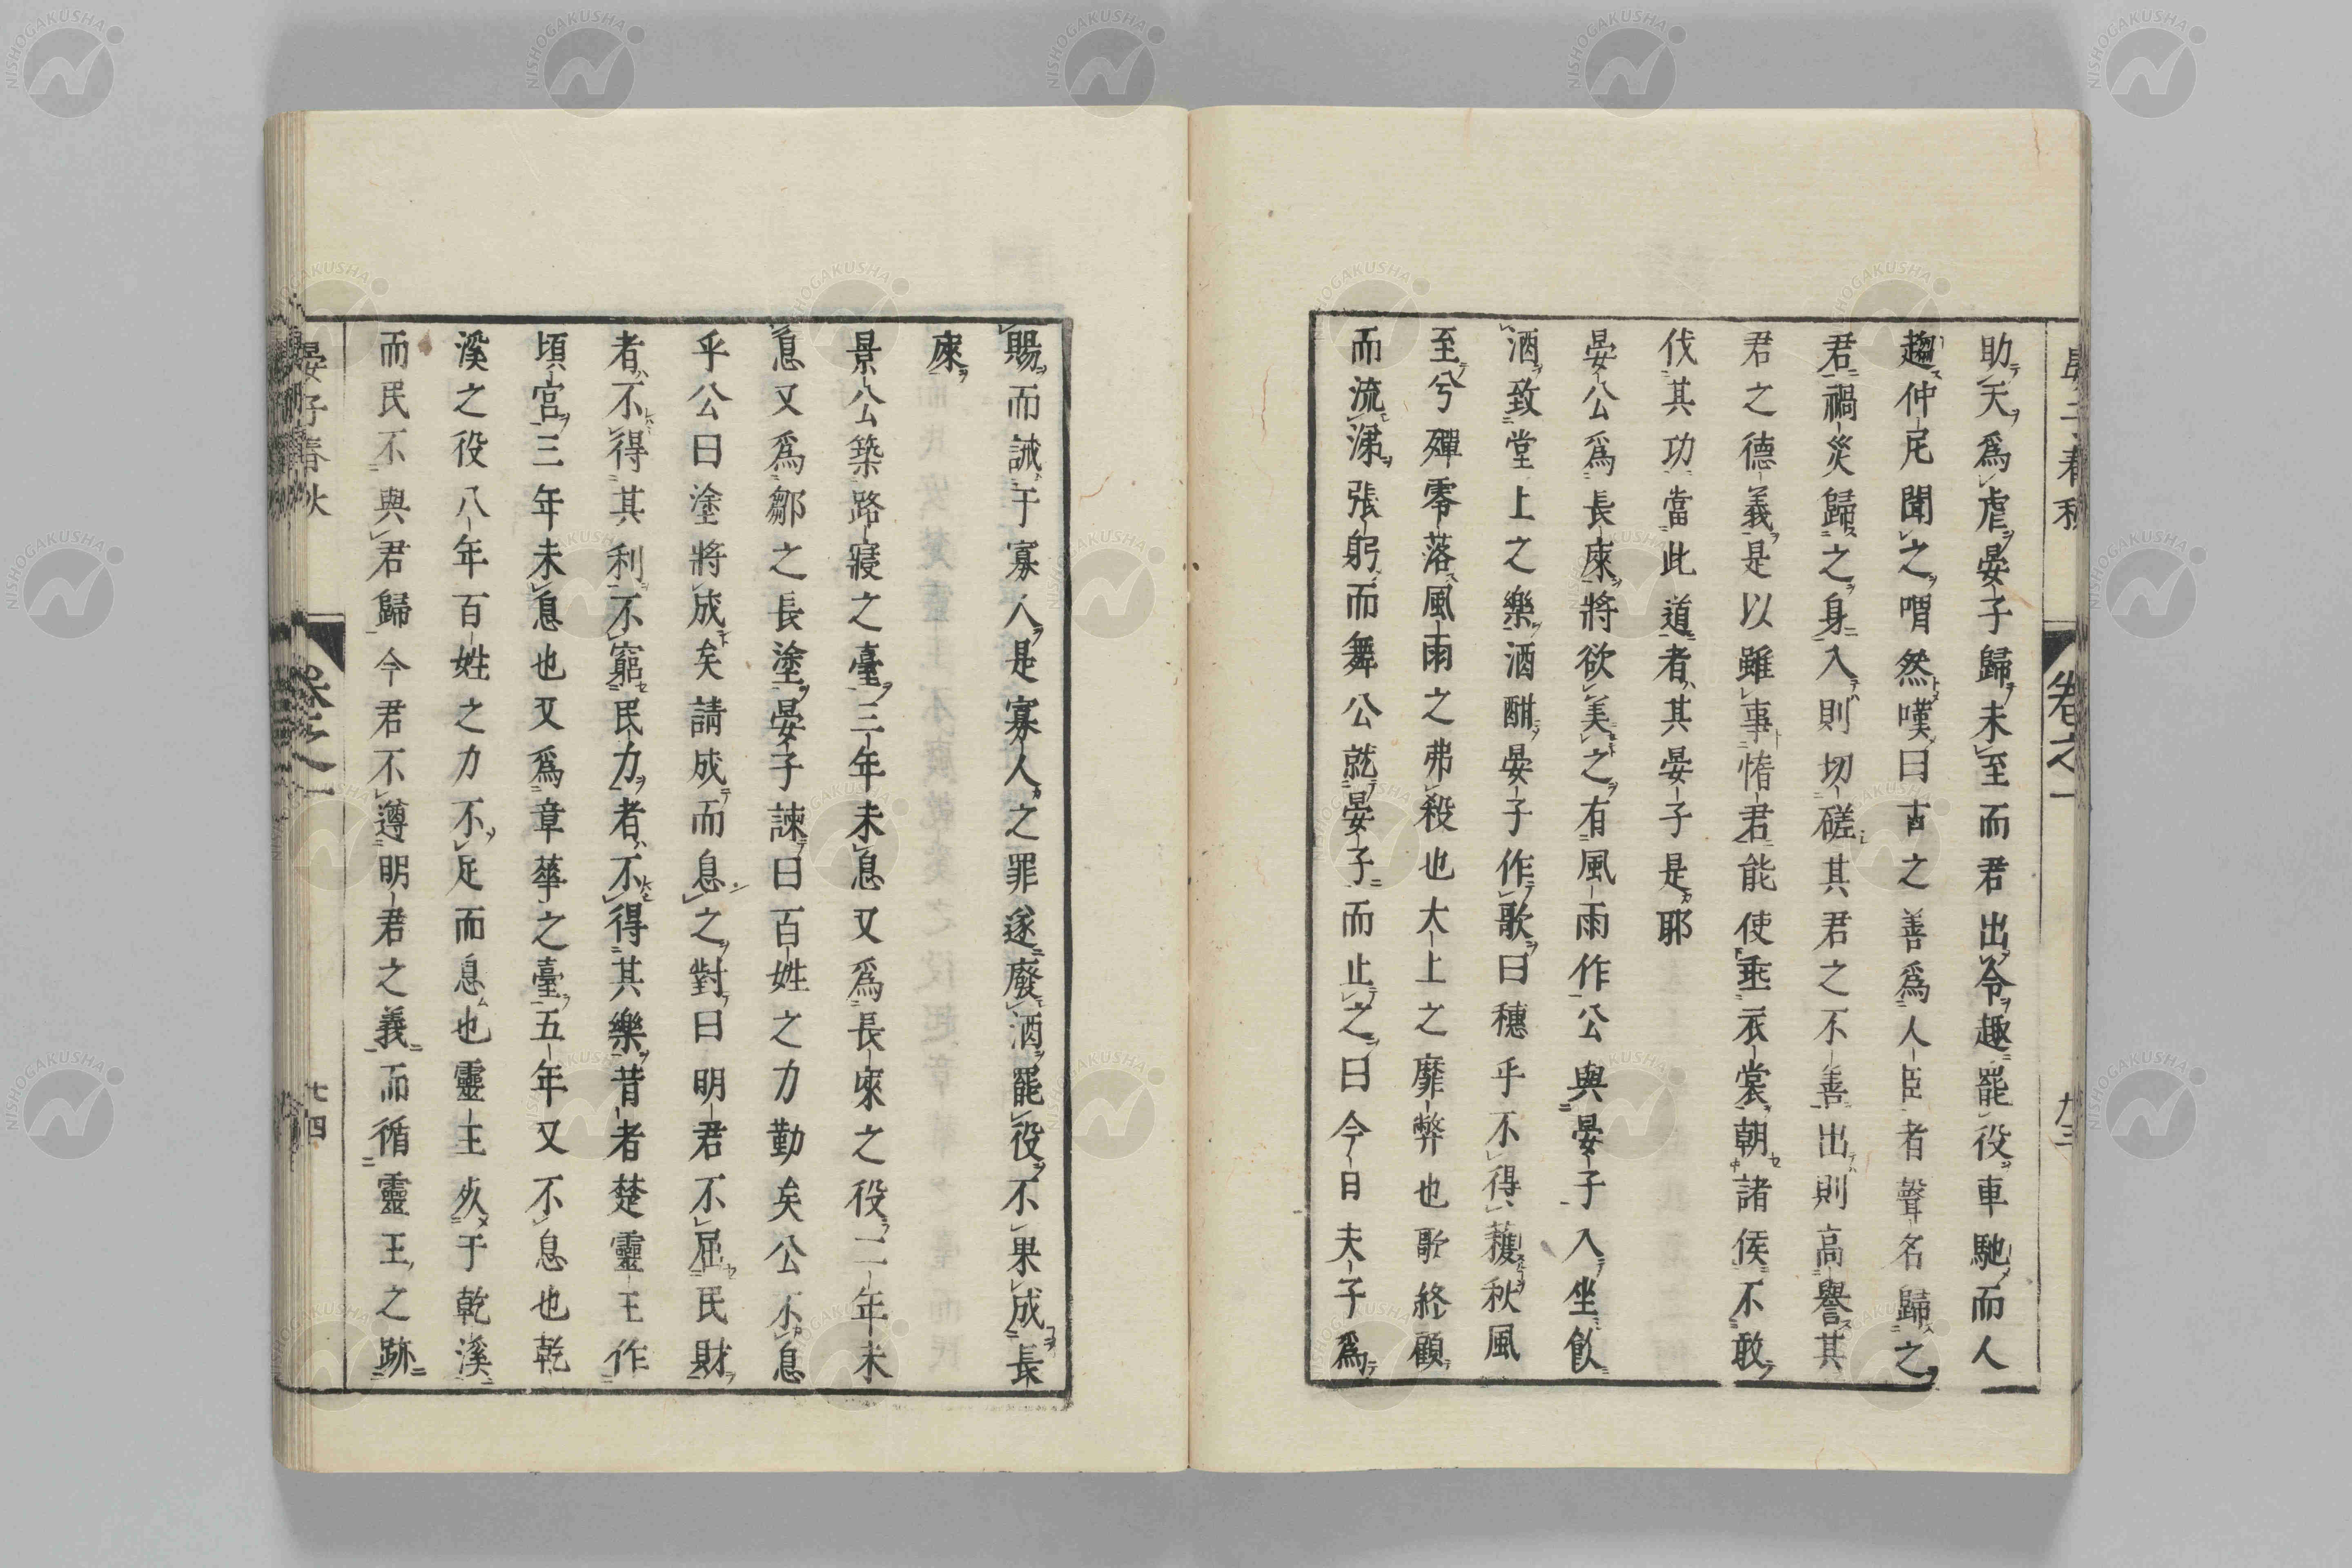 助天爲虐晏子歸未至而君出令趣罷役車馳而人
趨仲尼聞之喟然嘆曰古之善爲人臣者聲名歸之
君禍災歸之身入則切磋其君之不善出則高譽其
君之德義是以雖事惰君能使垂衣裳朝諸侯不敢
伐其功當此道者其晏子是耶
晏公爲長庲將欲美之有風雨作公與晏子入坐飮
酒致堂上之樂酒酣晏子作歌曰穗乎不得穫秋風
至兮殫零落風雨之弗殺也大上之靡弊也歌終顧
而流涕張躬而舞公就晏子而止之曰今日夫子爲
賜而誡于寡人是寡人之罪遂廢酒罷役不果成長
庲
景公築路寢之臺三年未息又爲長庲之役二年未
息又爲鄒之長塗晏子諫曰百姓之力勤矣公不息
乎公曰塗將成矣請成而息之對曰明君不屈民財
者不得其利不窮民力者不得其樂昔者楚靈王作
頃宮三年未息也又爲章華之臺五年又不息也乾
溪之役八年百姓之力不足而息也靈王死于乾溪
而民不與君歸今君不遵明君之義而循靈王之跡
晏子春秋
卷之一
七四
卷之一
NISHOGAKUSHA